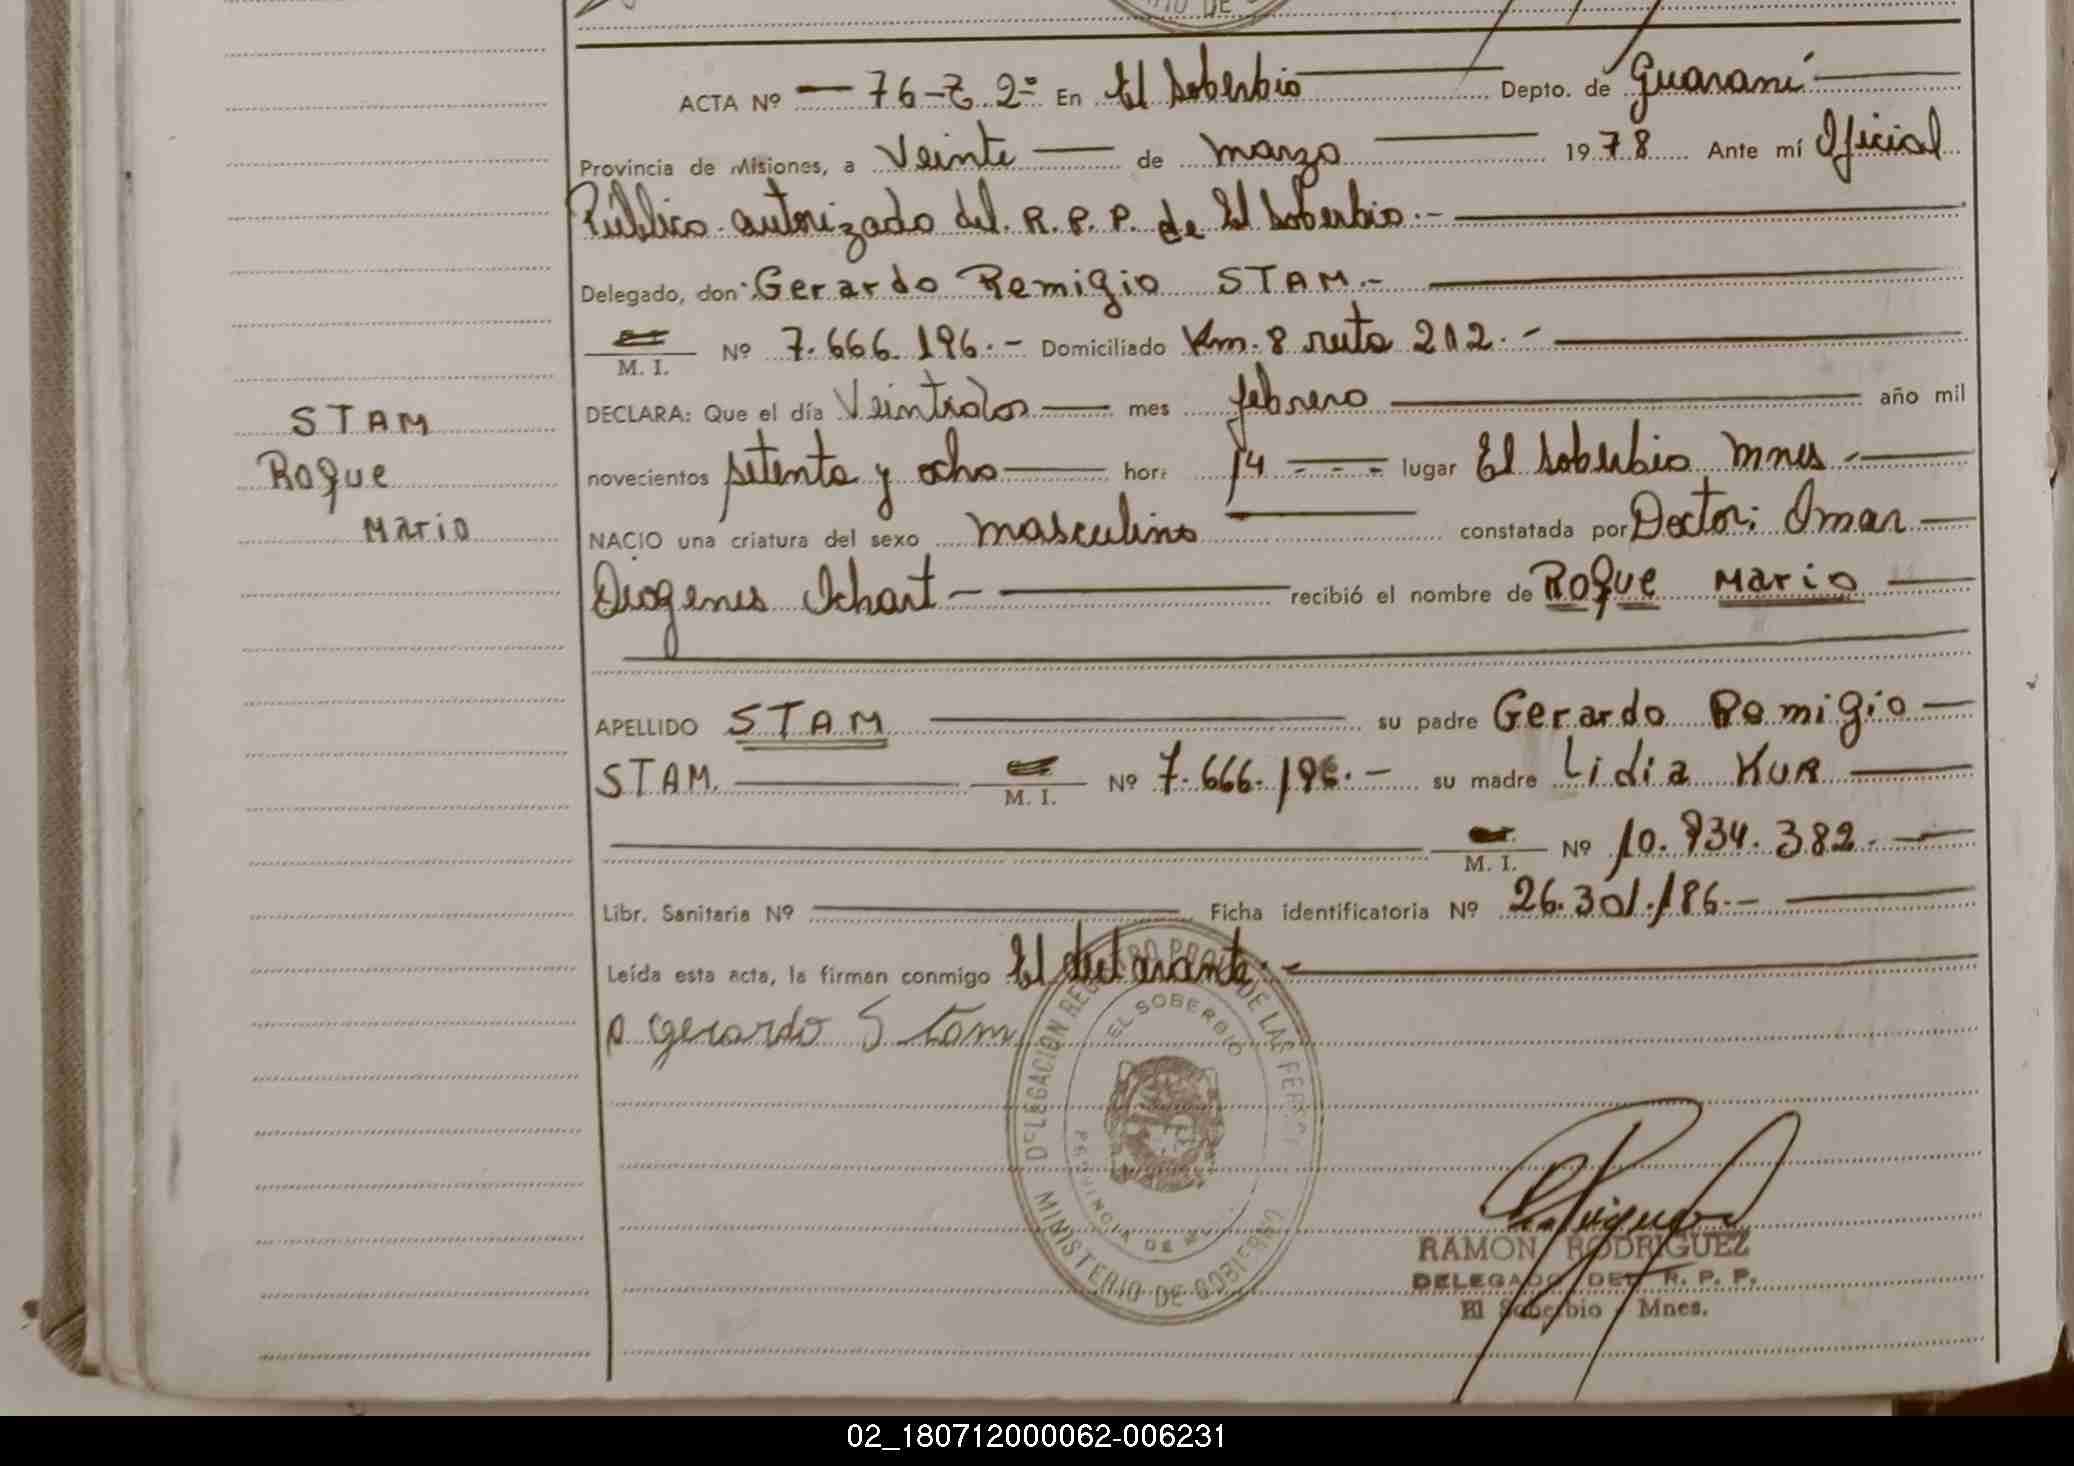 ACTA Nº — 76-T. 2º En El Soberbio Depto. de Guaraní
Provincia de Misiones, a Veinte de marzo 1978 Ante mí Oficial
Público autorizado del R.P.P. de El Soberbio.-
Delegado, don Gerardo Remigio STAM.-
M. I. Nº 7.666.196.- Domiciliado Km. 8 ruta 212.-
DECLARA: Que el día Veintidos mes febrero año mil
novecientos setenta y ocho hora 14 lugar El Soberbio Mnes
NACIO una criatura del sexo masculino constatada por Doctor: Omar
Diogenes Ichart recibió el nombre de Roque Mario
STAM
Roque
Mario
APELLIDO STAM su padre Gerardo Remigio
STAM. M. I. Nº 7.666.196.- su madre Lidia KUR
M. I. Nº 10.934.382.-
Libr. Sanitaria Nº Ficha identificatoria Nº 26.301.186.-
Leída esta acta, la firman conmigo El declarante.-
Gerardo Stam
EL SOBERBIO
PROVINCIA DE
MINISTERIO DE GOBIERNO
RAMON RODRIGUEZ
DELEGADO DEL R. P. P.
El Soberbio - Mnes.
02_180712000062-006231